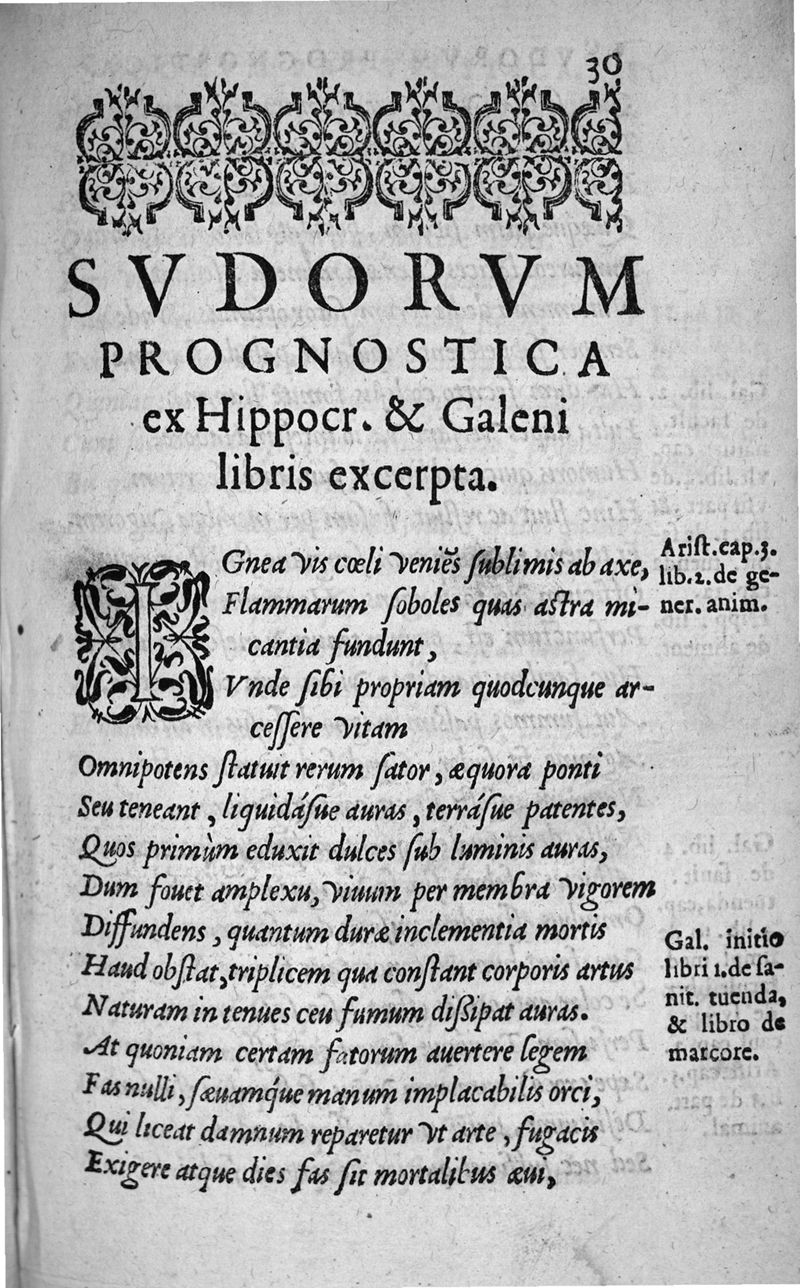 30
SVDORVM
PROGNOSTICA
ex Hippocr. & Galeni
libris excerpta.
IGnea vis cœli veniẽs ſublimis ab axe,
Flammarum ſoboles quas aſtra mi-
cantia fundunt,
Vnde ſibi propriam quodcunque ar-
ceſſere vitam
Omnipotens ſtatuit rerum ſator, æquora ponti
Seu teneant, liquidáſue auras, terráſue patentes,
Quos primùm eduxit dulces ſub luminis auras,
Dum fouet amplexu, viuum per membra vigorem
Diffundens, quantum duræ inclementia mortis
Haud obſtat, triplicem qua conſtant corporis artus
Naturam in tenues ceu fumum dißipat auras.
At quoniam certam fatorum auertere legem
Fas nulli, ſæuamq́ue manum implacabilis orci,
Qui liceat damnum reparetur vt arte, fugacis
Exigere atque dies fas ſit mortalibus æui,
Ariſt. cap. 3.
lib. 2. de ge-
ner. anim.
Gal. initio
libri 1. de ſa-
nit. tuenda,
& libro de
marcore.